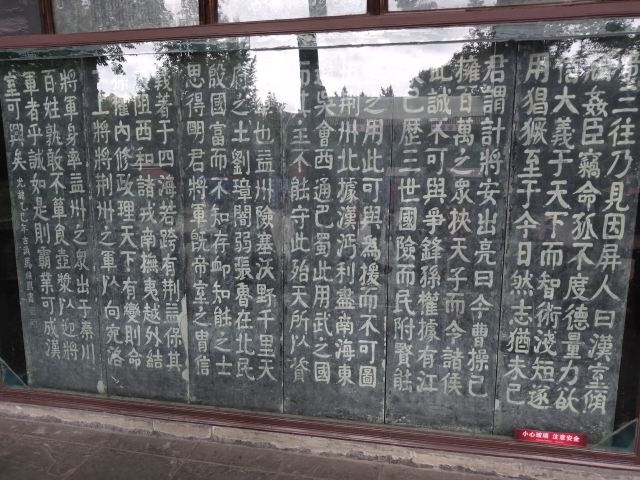 三往乃見因屏人曰漢室傾
頹姦臣竊命孤不度德量力欲
信大義于天下而智術淺短遂
用猖獗至于今日然志猶未已
君謂計將安出亮曰今曹操已
擁百萬之眾挾天子而令諸侯
此誠不可與爭鋒孫權據有江
已歷三世國險而民附賢能
之用此可與為援而不可圖
荊州北據漢沔利盡南海東
吳會西通巴蜀此用武之國
而其主不能守此殆天所以資
也益州險塞沃野千里天
府之土劉璋闇弱張魯在北民
殷國富而不知存恤知能之士
思得明君將軍既帝室之冑信
義著于四海若跨有荊益保其
阻西和諸戎南撫夷越外結
權內修政理天下有變則命
一上將將荊州之軍以向宛洛
將軍身率益州之眾出于秦川
百姓孰敢不簞食壺漿以迎將
軍者乎誠如是則霸業可成漢
室可興矣
小心玻璃 注意安全